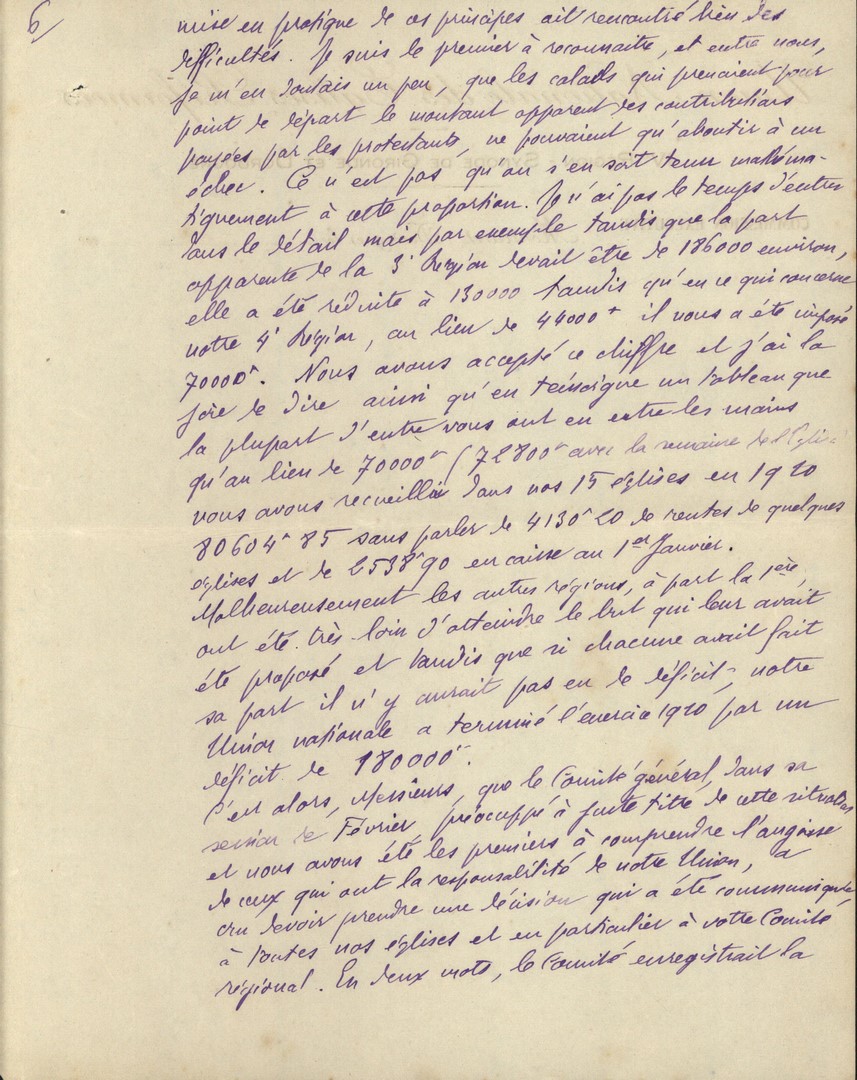 6/
mise en pratique de ces principes ait rencontré bien des
difficultés. Je suis le premier à reconnaitre, et entre nous,
je m'en doutais un peu, que les calculs qui prenaient pour
point de départ le montant apparent des contributions
payées par les protestants, ne pouvaient qu'aboutir à un
échec. Ce n'est pas qu'on s'en soit tenu mathéma-
tiquement à cette proportion. Je n'ai pas le temps d'entrer
dans le détail mais par exemple tandis que la part
apparente de la 3e Région devait être de 186000 environ,
elle a été réduite à 130000 tandis qu'en ce qui concerne
notre 4e Région, au lieu de 44000 il vous a été imposé
70000f. Nous avons accepté ce chiffre et j'ai la
joie de dire ainsi qu'en témoigne un tableau que
la plupart d'entre vous ont eu entre les mains
qu'au lieu de 70000f (72800f avec la semaine de l'Eglise
nous avons recueilli dans nos 15 églises en 1920
80604f 85 sans parler de 4130f 20 de rentes de quelques
églises et de 2538f90 en caisse au 1er Janvier.
Malheureusement les autres régions, à part la 1ère,
ont été très loin d'atteindre le but qui leur avait
été proposé et tandis que si chacune avait fait
sa part il n'y aurait pas eu de déficit, notre
Union nationale a terminé l'exercice 1920 par un
déficit de 180000f.
C'est alors, Messieurs, que le Comité général, dans sa
session de Février, préoccupé à juste titre de cette situation
et nous avons été les premiers à comprendre l'angoisse
de ceux qui ont la responsabilité de notre Union, a
cru devoir prendre une décision qui a été communiquée
à toutes nos églises et en particulier à votre Comité
régional. En deux mots, le Comité enregistrait la